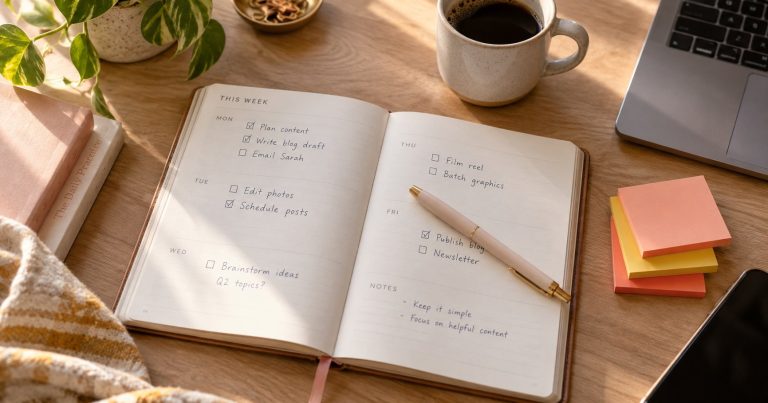 THIS WEEK
MON
☑ Plan content
☑ Write blog draft
☐ Email Sarah
TUE
☐ Edit photos
☑ Schedule posts
WED
☐ Brainstorm ideas
Q2 topics?
THU
☐ Film reel
☐ Batch graphics
FRI
☑ Publish blog
☐ Newsletter
NOTES
- Keep it simple
- Focus on helpful content
The Daily Practice